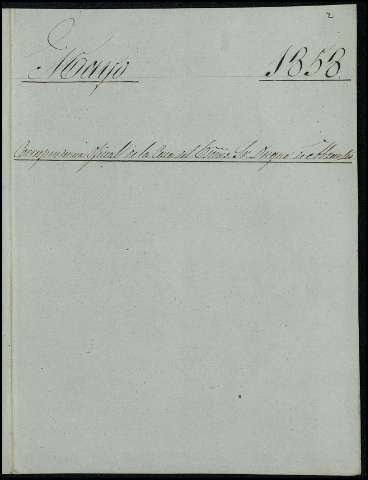 2
Mayo 1858
Correspondencia oficial de la Casa del Exmo. Sr. Duque de Abrantes